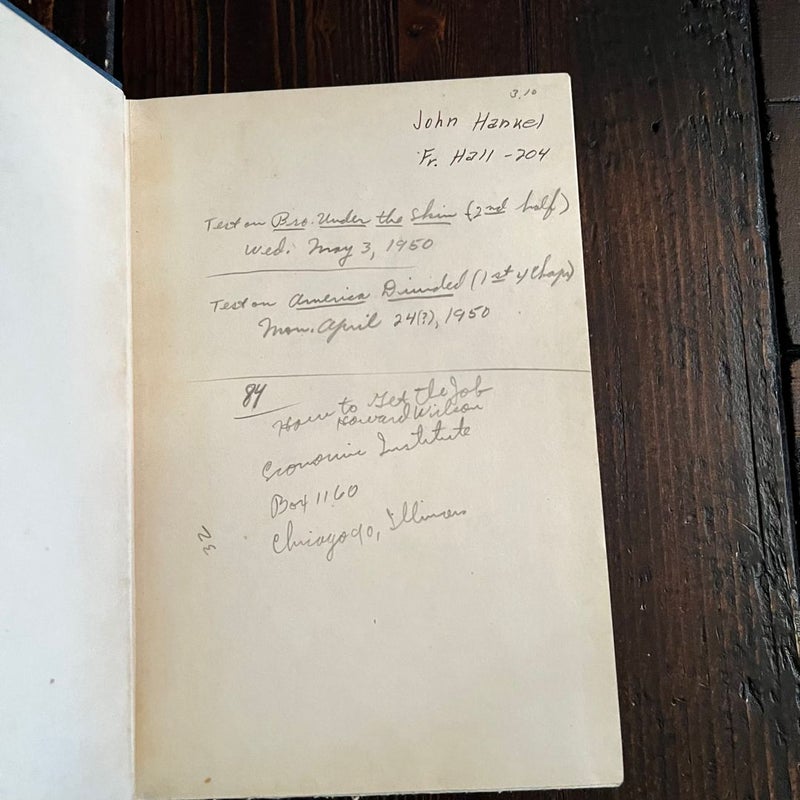 3.10
John Hankel
Fr. Hall - 204
Test on Bro. Under the Skin (2nd half)
Wed. May 3, 1950
Test on America Divided (1st 4 Chaps)
Mon. April 24(?), 1950
84
How to Get the Job
Howard Wilson
Economic Institute
Box 1160
Chicago 90, Illinois
32